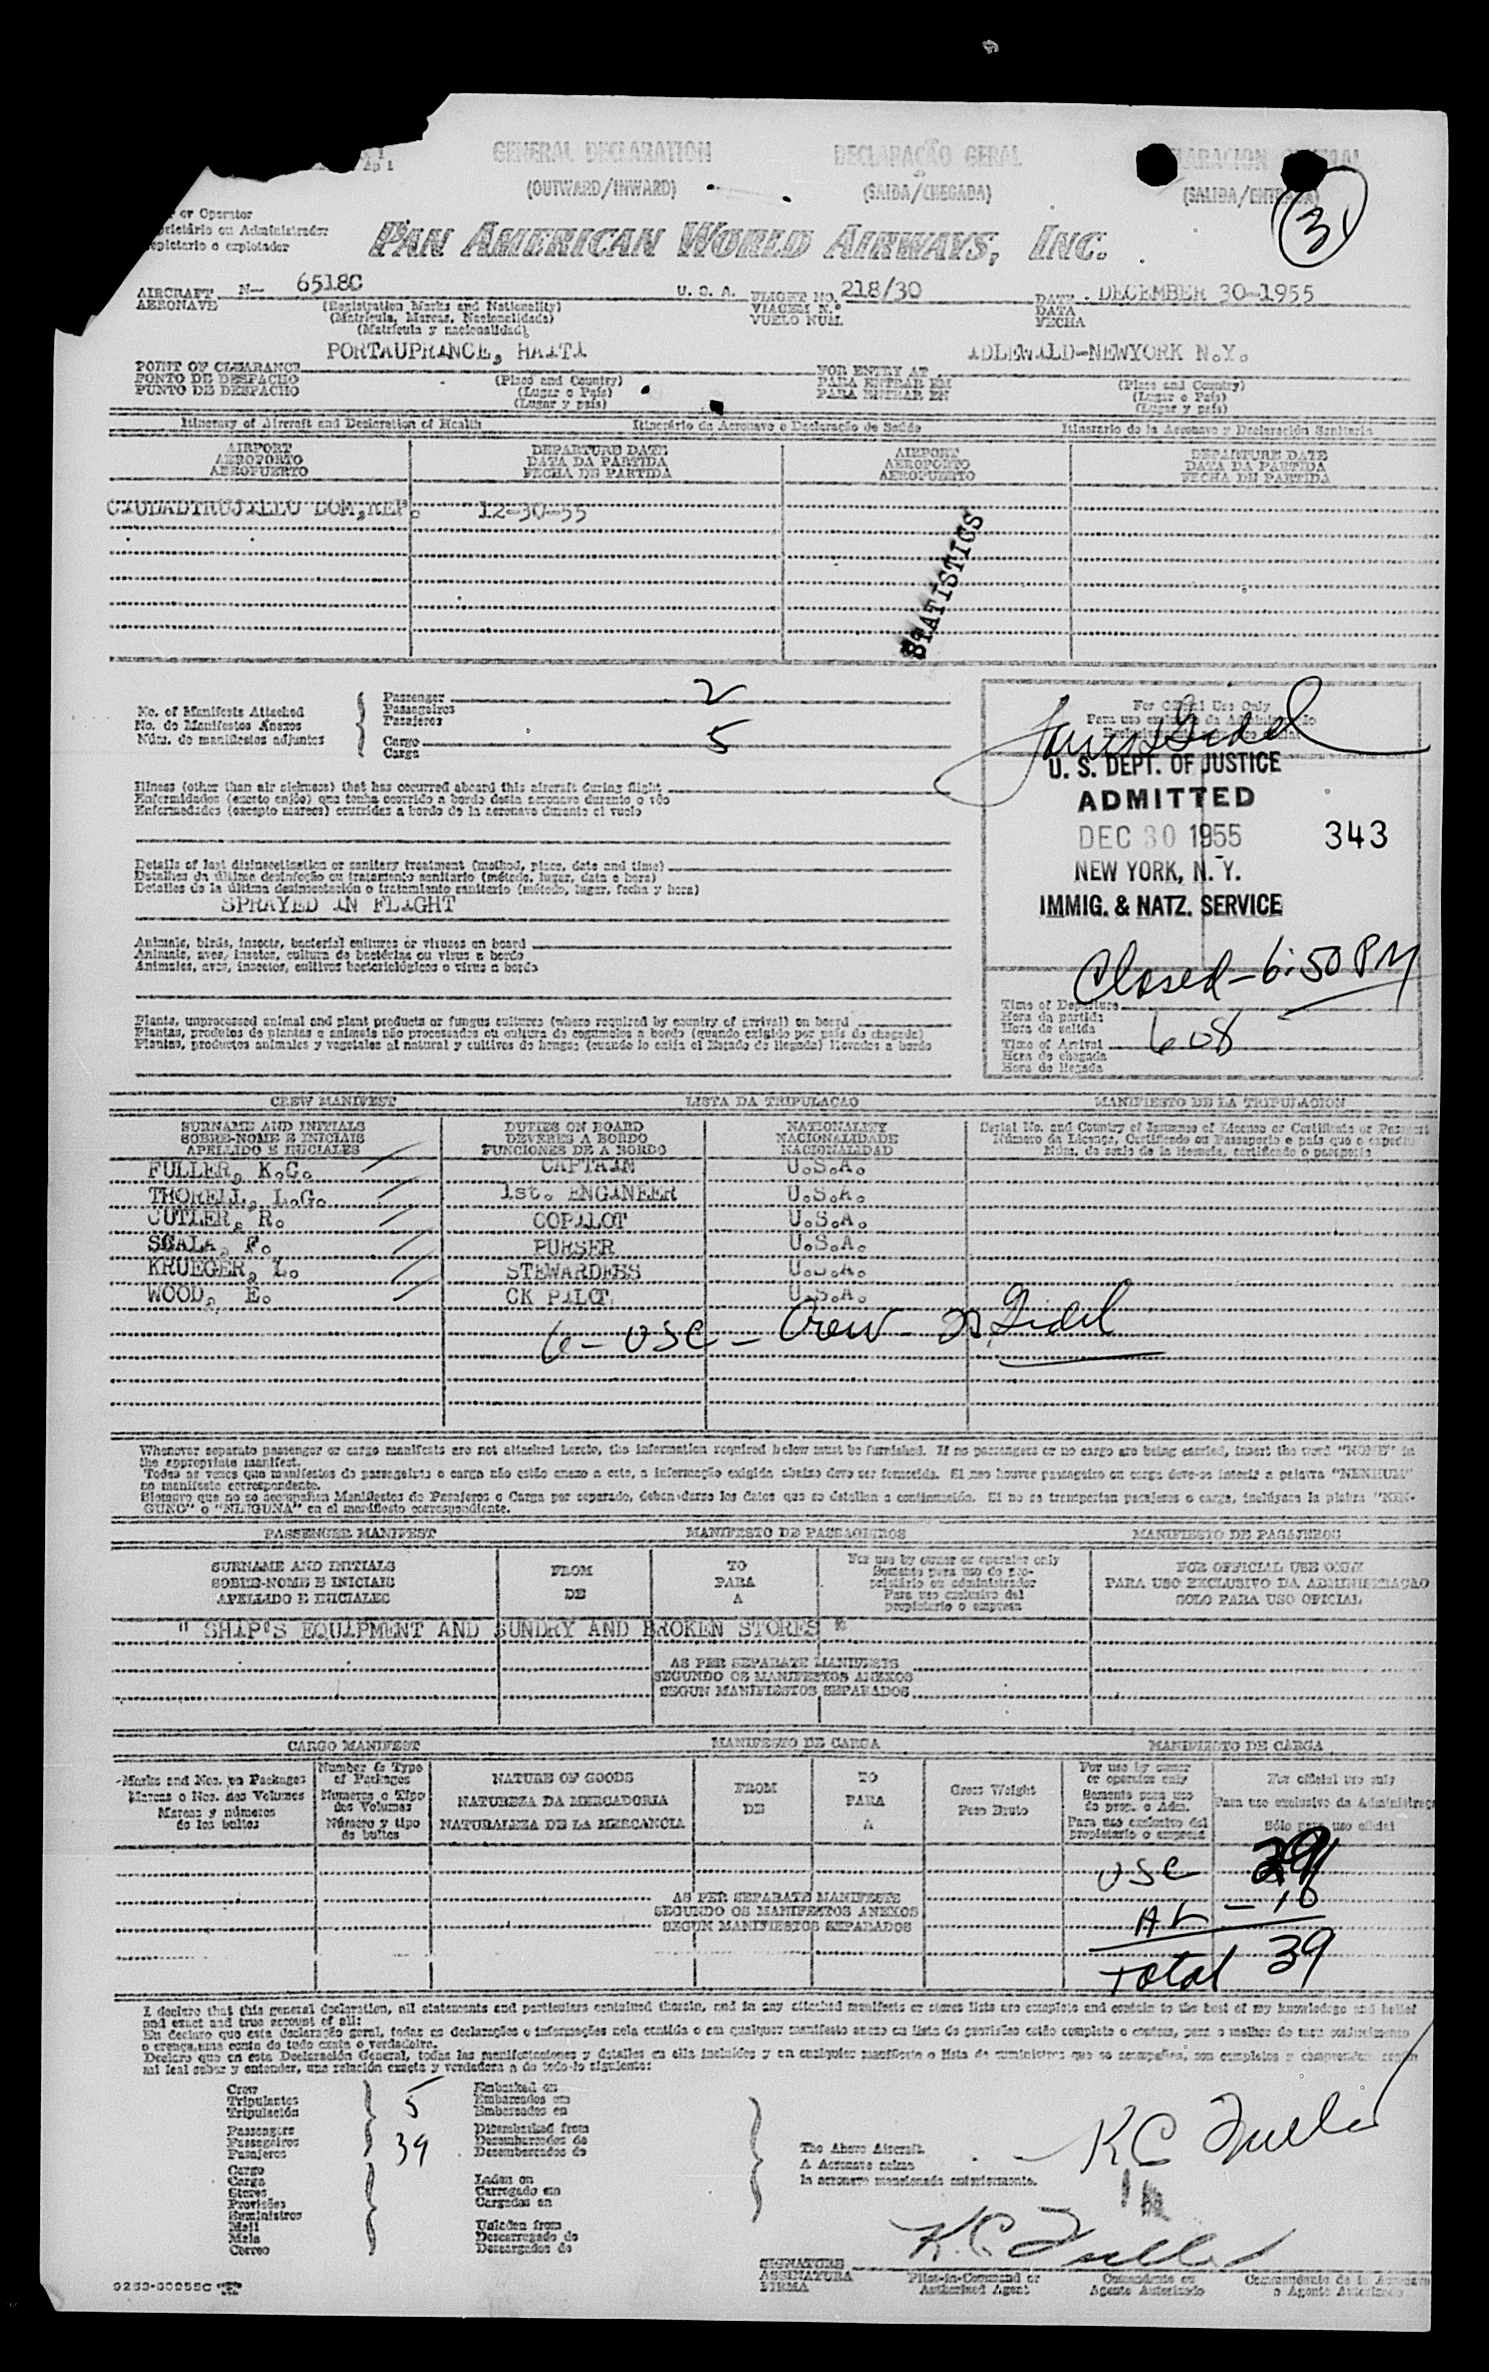 GENERAL DECLARATION DECLARAÇÃO GERAL
(OUTWARD/INWARD) (SAIDA/CHEGADA) (SALIDA/ENTRADA)
3
or Operator
PAN AMERICAN WORLD AIRWAYS, INC.
AIRCRAFT N- 6518C U. S. A. FLIGHT NO. 218/30 DATE DECEMBER 30-1955
AERONAVE (Registration Marks and Nationality) VIAGEM N.º DATA
(Matricula, Marcas, Nacionalidade) VUELO NUM. FECHA
(Matrícula y nacionalidad)
PORTAUPRINCE, HAITI IDLEWILD-NEWYORK N.Y.
POINT OF CLEARANCE FOR ENTRY AT
PONTO DE DESPACHO (Place and Country) PARA ENTRAR EM (Place and Country)
PUNTO DE DESPACHO (Lugar o País) PARA ENTRAR EN (Lugar o País)
(Lugar y país) (Lugar y país)
Itinerary of Aircraft and Declaration of Health Itinerário da Aeronave e Declaração de Saúde Itinerario de la Aeronave y Declaración Sanitaria
AIRPORT DEPARTURE DATE AIRPORT DEPARTURE DATE
AEROPORTO DATA DA PARTIDA AEROPORTO DATA DA PARTIDA
AEROPUERTO FECHA DE PARTIDA AEROPUERTO FECHA DE PARTIDA
CIUDADTRUJILLO DOM,REP. 12-30-55
STATISTICS
Passenger 2
No. of Manifests Attached Passageiros
No. de Manifestos Anexos Pasajeros
Núm. de manifiestos adjuntos Cargo 5
Carga
For Official Use Only
U. S. DEPT. OF JUSTICE
ADMITTED
DEC 30 1955 343
NEW YORK, N. Y.
IMMIG. & NATZ. SERVICE
Closed - 6:50 PM
Time of Departure
Hora da partida
Hora de salida
Time of Arrival 608
Hora de chegada
Hora de llegada
Illness (other than air sickness) that has occurred aboard this aircraft during flight
Enfermidades (exceto enjôo) que tenha ocorrido a bordo desta aeronave durante o vôo
Enfermedades (excepto mareos) ocurridas a bordo de la aeronave durante el vuelo
Details of last disinsectisation or sanitary treatment (method, place, date and time)
Detalhes da última desinfeção ou tratamento sanitario (método, lugar, data e hora)
Detalles de la última desinsectación o tratamiento sanitario (método, lugar, fecha y hora)
SPRAYED IN FLIGHT
Animals, birds, insects, bacterial cultures or viruses on board
Animais, aves, insetos, cultura de bactérias ou virus a bordo
Animales, aves, insectos, cultivos bacteriológicos o virus a bordo
Plants, unprocessed animal and plant products or fungus cultures (where required by country of arrival) on board
Plantas, produtos de plantas e animais não processados ou cultura de cogumelos a bordo (quando exigido por país da chegada)
Plantas, productos animales y vegetales al natural y cultivos de hongos (cuando lo exija el Estado de llegada) llevados a bordo
CREW MANIFEST LISTA DA TRIPULAÇAO MANIFIESTO DE LA TRIPULACION
SURNAME AND INITIALS DUTIES ON BOARD NATIONALITY Serial No. and Country of Issuance of License or Certificate or Passport
SOBRE-NOME E INICIAIS DEVERES A BORDO NACIONALIDADE Número da Licença, Certificado ou Passaporte e país que o expediu
APELLIDO E INICIALES FUNCIONES DE A BORDO NACIONALIDAD Núm. de serie de la licencia, certificado o pasaporte
FULLER, K.C. CAPTAIN U.S.A.
THORELL, L.G. 1st. ENGINEER U.S.A.
CUTLER, R. COPILOT U.S.A.
SCALA, F. PURSER U.S.A.
KRUEGER, L. STEWARDESS U.S.A.
WOOD, E. CK PILOT U.S.A.
6 - USC - Crew
Whenever separate passenger or cargo manifests are not attached hereto, the information required below must be furnished. If no passengers or no cargo are being carried, insert the word "NONE" in
the appropriate manifest.
Todas as vezes que manifestos de passageiros o carga não estão anexo a este, a informação exigida abaixo deve ser fornecida. Si nao houver passageiro ou carga deve-se inserir a palavra "NENHUM"
no manifesto correspondente.
Siempre que no se acompañan Manifiestos de Pasajeros o Carga por separado, deben darse los datos que se detallan a continuación. Si no se transportan pasajeros o carga, inclúyase la plabra "NIN-
GUNO" o "NINGUNA" en el manifiesto correspondiente.
PASSENGER MANIFEST MANIFESTO DE PASSAGEIROS MANIFIESTO DE PASAJEROS
SURNAME AND INITIALS FROM TO For use by owner or operator only FOR OFFICIAL USE ONLY
SOBRE-NOME E INICIAIS DE PARA Somente para uso do pro- PARA USO EXCLUSIVO DA ADMINISTRAÇAO
APELLIDO E INICIALES A prietário ou administrador SOLO PARA USO OFICIAL
Para uso exclusivo del
propietario o empresa
" SHIP'S EQUIPMENT AND SUNDRY AND BROKEN STORES "
AS PER SEPARATE MANIFESTS
SEGUNDO OS MANIFESTOS ANEXOS
SEGUN MANIFIESTOS SEPARADOS
CARGO MANIFEST MANIFESTO DE CARGA MANIFIESTO DE CARGA
Marks and Nos. on Packages Number & Type of Packages NATURE OF GOODS FROM TO Gross Weight For use by owner or operator only For official use only
Marcas o Nos. dos Volumes Numeros o Tipo dos Volumes NATUREZA DA MERCADORIA DE PARA Peso Bruto Somente para uso do prop. o Adm. Para uso exclusivo da Administraç
Marcas y números de los bultos Número y tipo de bultos NATURALEZA DE LA MERCANCIA A Para uso exclusivo del propietario o empresa Sólo para uso oficial
USC 29
AL - 10
Total 39
AS PER SEPARATE MANIFESTS
SEGUNDO OS MANIFESTOS ANEXOS
SEGUN MANIFIESTOS SEPARADOS
I declare that this general declaration, all statements and particulars contained therein, and in any attached manifests or stores lists are complete and contain to the best of my knowledge and belief
and exact and true account of all:
Declaro que en esta Declaración General, todas las manifestaciones y detalles en ella incluídos y en cualquier manifiesto o lista de suministros que se acompañen, son completos y comprenden según
mi leal saber y entender, una relación exacta y verdadera a de todo lo siguiente:
Crew 5 Embarked on
Tripulantes Embarcados em
Tripulación Embarcados en
Passengers 39 Disembarked from
Passageiros Desembarcados de
Pasajeros Desembarcados de
Cargo
Carga Laden on
Stores Carregado em
Provisões Cargados en
Suministros
Mail Unladen from
Mala Descarregado de
Correo Descargados de
The Above Aircraft.
A Aeronave acima
la aeronave mencionada anteriormente.
KC Fuller
K.C. Fuller
SIGNATURE
ASSINATURA Pilot-in-Command or Comandante ou
FIRMA Authorized Agent Agente Autorizado o Agente Autorizado